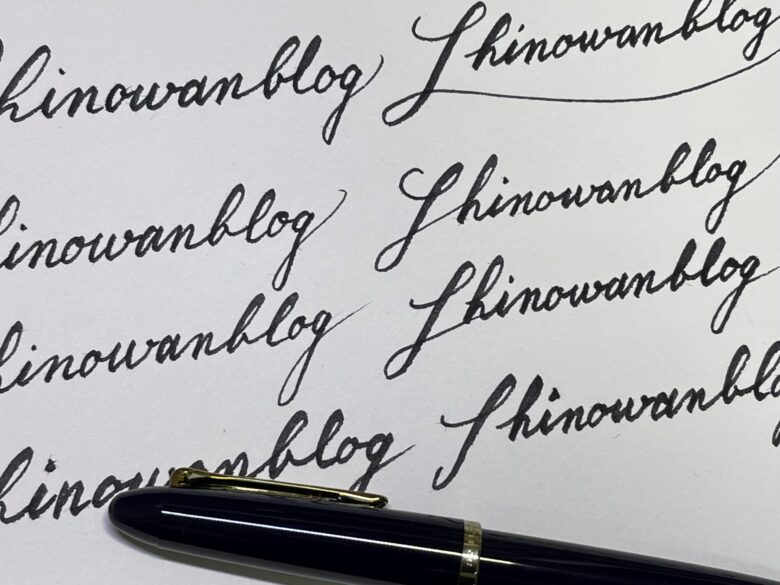 hinowanblog Shinowanblog
hinowanblog Shinowanblog
hinowanblog Shinowanblog
hinowanblog Shinowanblo